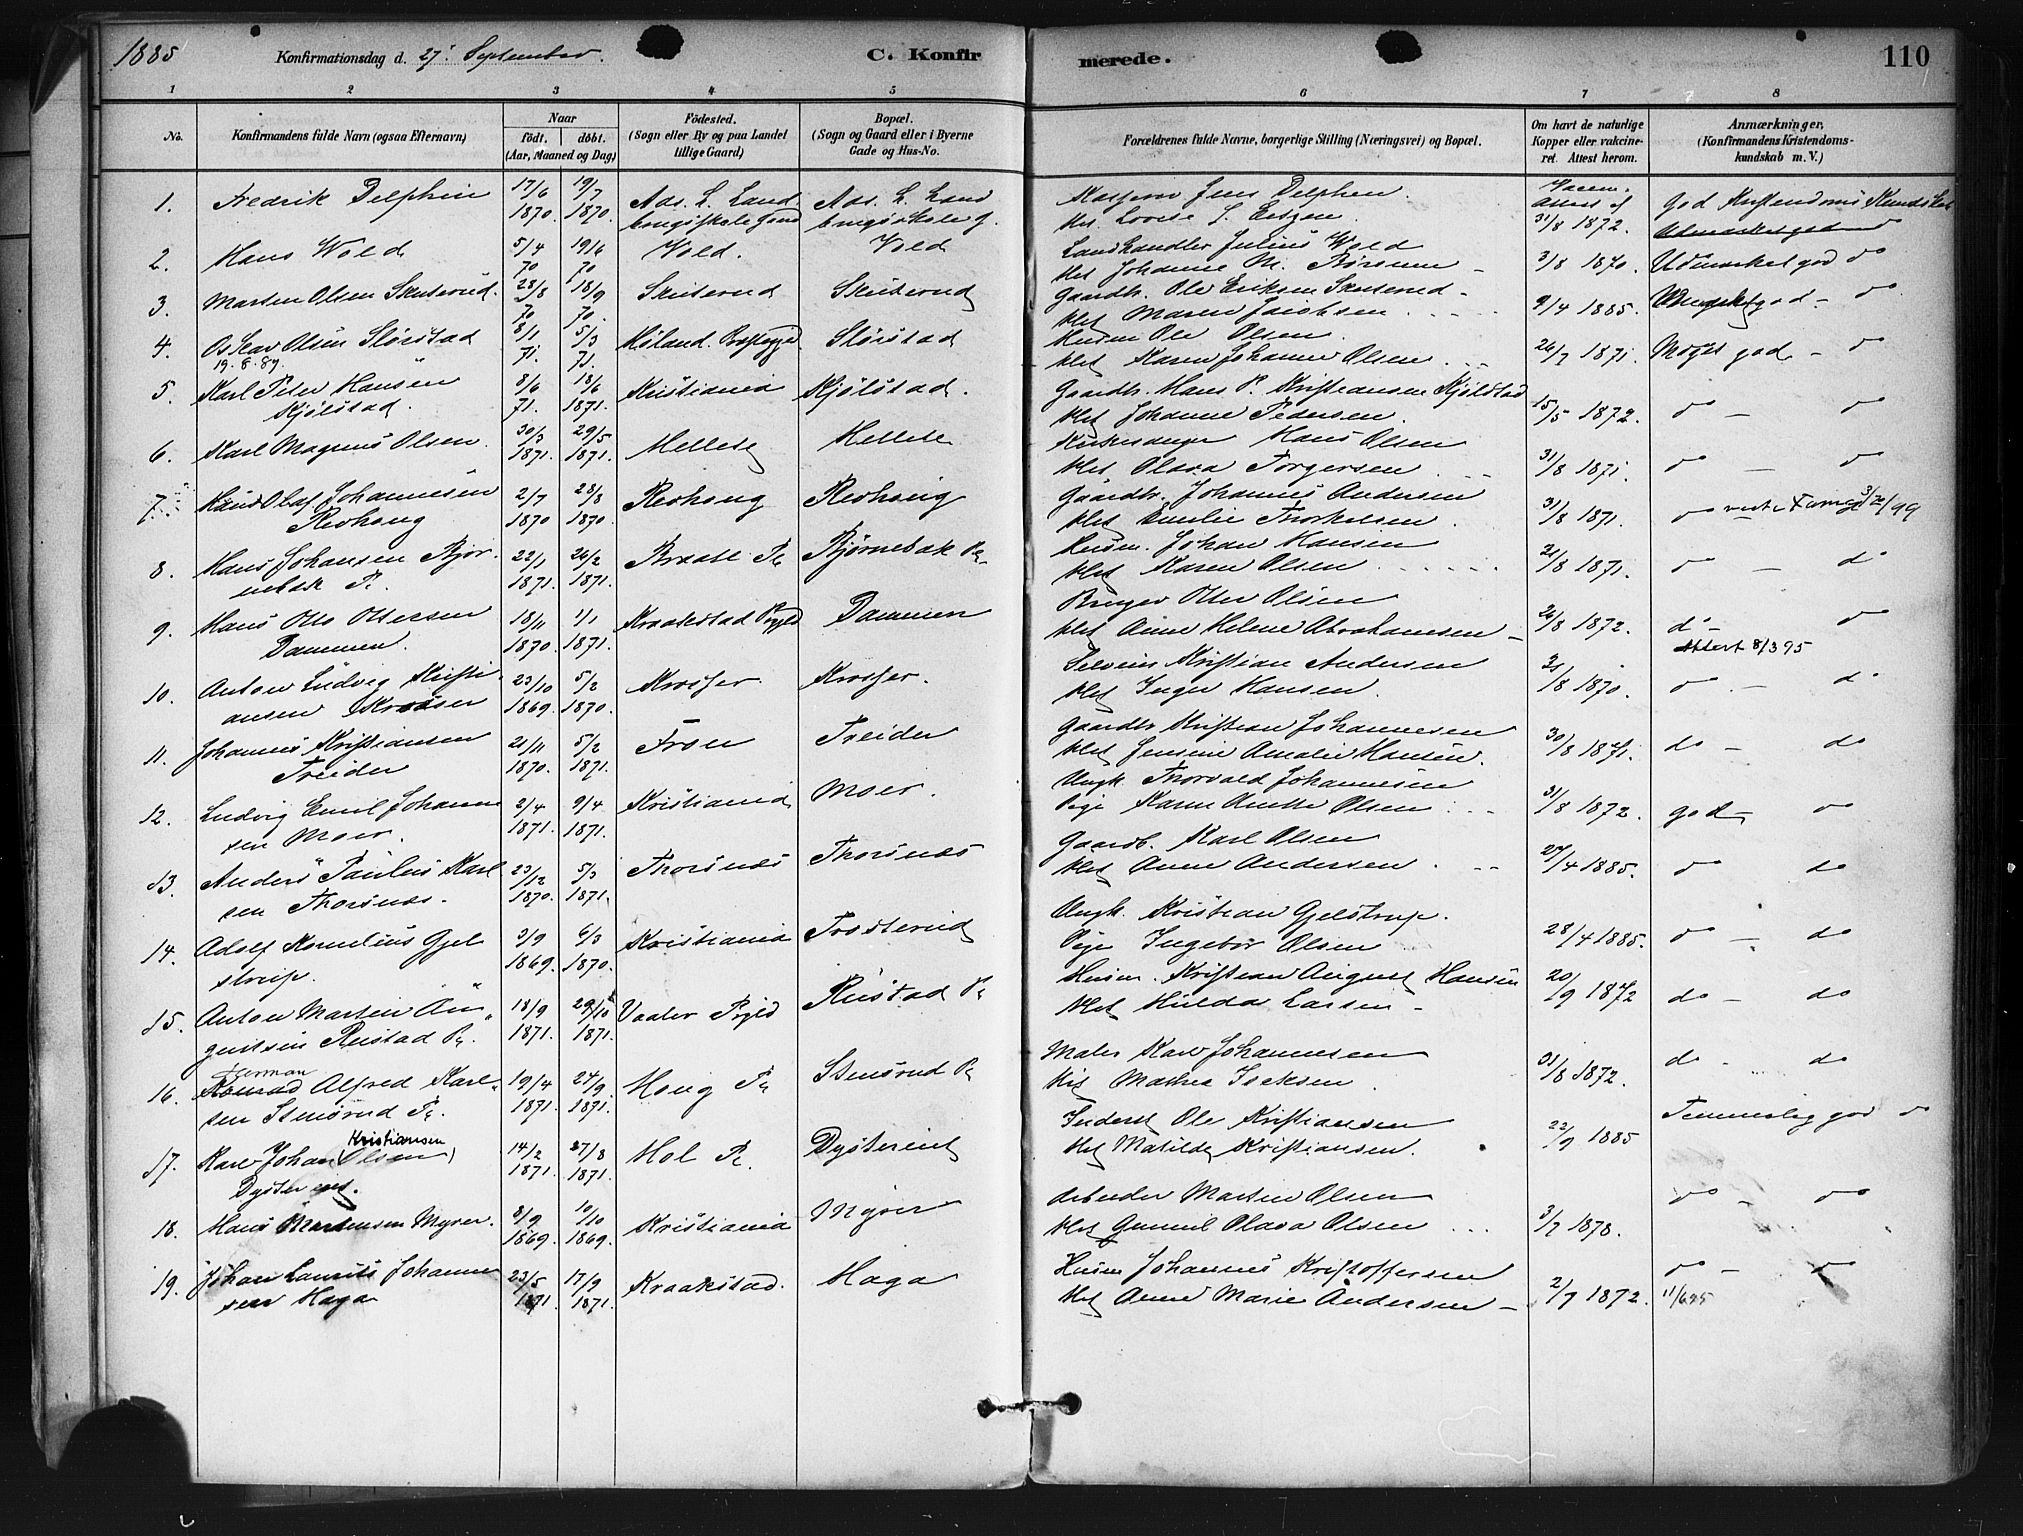 1885 Konfirmationsdag d. 27' September. C. Konfirmerede. 110
1 2 3 4 5 6 7 8
No. Konfirmandens fulde Navn (ogsaa Efternavn) Naar Født. døbt. (Aar, Maaned og Dag) Fødested. (Sogn eller By og paa Landet tillige Gaard) Bopæl. (Sogn og Gaard eller i Byerne Gade og Hus-No. Forældrenes fulde Navne, borgerlige Stilling (Næringsvei) og Bopæl. Om havt de naturlige Kopper eller vakcineret. Attest herom. Anmærkninger. (Konfirmandens Kristendomskundskab m. V.)
1. Fredrik Delphin 17/6 19/7 Aas. L. Land Aas. L. Land Jens Delphin
1870. 1870. brugsskole brugsskole Lovise 31/8 1872. god Kristendoms Kundskab
2. Hans Wold 5/4 19/6 Vold. Vold Landhandler Julius Wold
70 70 Johanne M. 3/8 1870. Udmærket god do
3. Martin Olsen Skuterud. 28/8 18/9 Skuterud Skuterud Gaardbr. Ole Eriksen Skuterud
70 70. Maren Jacobsen 9/4 1885. god do
4. Oskar Olsen Slørstad 8/1 5/3 Høland Slørstad Husm Ole Olsen.
19.8.87. 71. 71. Karen Johanne Olsen 26/7 1871. Meget god do
5. Karl Peter Hansen 8/6 18/6 Kristiania Kjølstad. Gaardbr. Hans P. Kristiansen Kjølstad
Kjølstad. 71. 1871. Johanne Pedersen. 15/5 1872. do do
6. Karl Magnus Olsen. 30/3 29/5 Hellese Kirkesanger Hans Olsen
1871. 1871. Olava Torgersen 31/8 1871. do do
7. Hans Olaf Johannesen 2/7 28/8 Revhaug Revhaug Gaardbr. Johannes Andersen
Revhaug 1870 1870. Emilie Thorkelsen. 31/8 1871. do
8. Hans Johansen Bjør- 22/1 26/2 Braate Pl Bjørnebæk Pl. Husm. Johan Hansen
nebæk Pl. 1871. 1871. Karen Olsen 21/8 1871. do do
9. Hans Otto Ottersen 18/11 1/1 Kraakstad Prgjld Dammen Bruger Otter Olsen
Dammen. 1870. 1871. Anne Helene Abrahamsen 26/8 1872. do do
Attest 8/3 95
10. Anton Ludvig Kristi- 23/10 5/2 Krosser Krosser. Selveier Kristian Andersen
ansen Krosser 1869. 1870. Inger Hansen. 31/8 1870. do do
11. Johannes Kristiansen 21/11 5/2 Fron Treider Gaardbr Kristian Johannesen
Treider 1870. 1871. Jensine Amalie Hansen. 30/8 1871. do do
12. Ludvig Emil Johanne- 2/4 9/4 Kristiania Moer. Ungk. Thorvald Johannesen
sen Moer. 1871. 1871. Pige Karen Anette Olsen 31/8 1872. god do
13. Anders Paulus Karl- 23/12 5/3 Thorsnæs Thorsnæs Gaardb. Karl Olsen
sen Thorsnæs. 1870. 1871. Anne Andersen 27/4 1885. do do
14. Adolf Kornelius Gjel- 3/9 6/3 Kristiania Trosterud Ungk. Kristian Gjelstrup.
strup. 1869. 1870. Pige Ingebor Olsen 28/4 1885. do do
15. Anton Martin Au- 18/9 29/10 Vaaler Prgjld Rustad Pl Husm. Kristian August Hansen
gustsen Rustad Pl. 1871. 1871. Hulda Larsen 20/9 1872 do do
16. Herman Konrad Alfred Karl- 19/4 24/9 Haug Pl Stensrud Pl Maler Karl Johannesen
sen Stensrud Pl. 1871. 1871. Mathea Iseksen 31/8 1872. do do
17. Karl Johan (Olsen) Kristiansen 14/2 27/8 Hol Pl. Dysterud Inderst Ole Kristiansen Temmelig god do
Dysterud. 1871. 1871. Matilde Kristiansen. 22/9 1885
18. Hans Martensen Myrer. 8/9 10/10 Kristiania Myrer Arbeider Marten Olsen do do
1869. 1869. Gunnil Olava Olsen 3/7 1878.
19. Johan Laurits Johanne- 23/5 17/9 Kraakstad. Haga Husm Johannes Kristoffersen do do
sen Haga 1871. 1871. Anne Marie Andersen 2/7 1872. 11/6 95